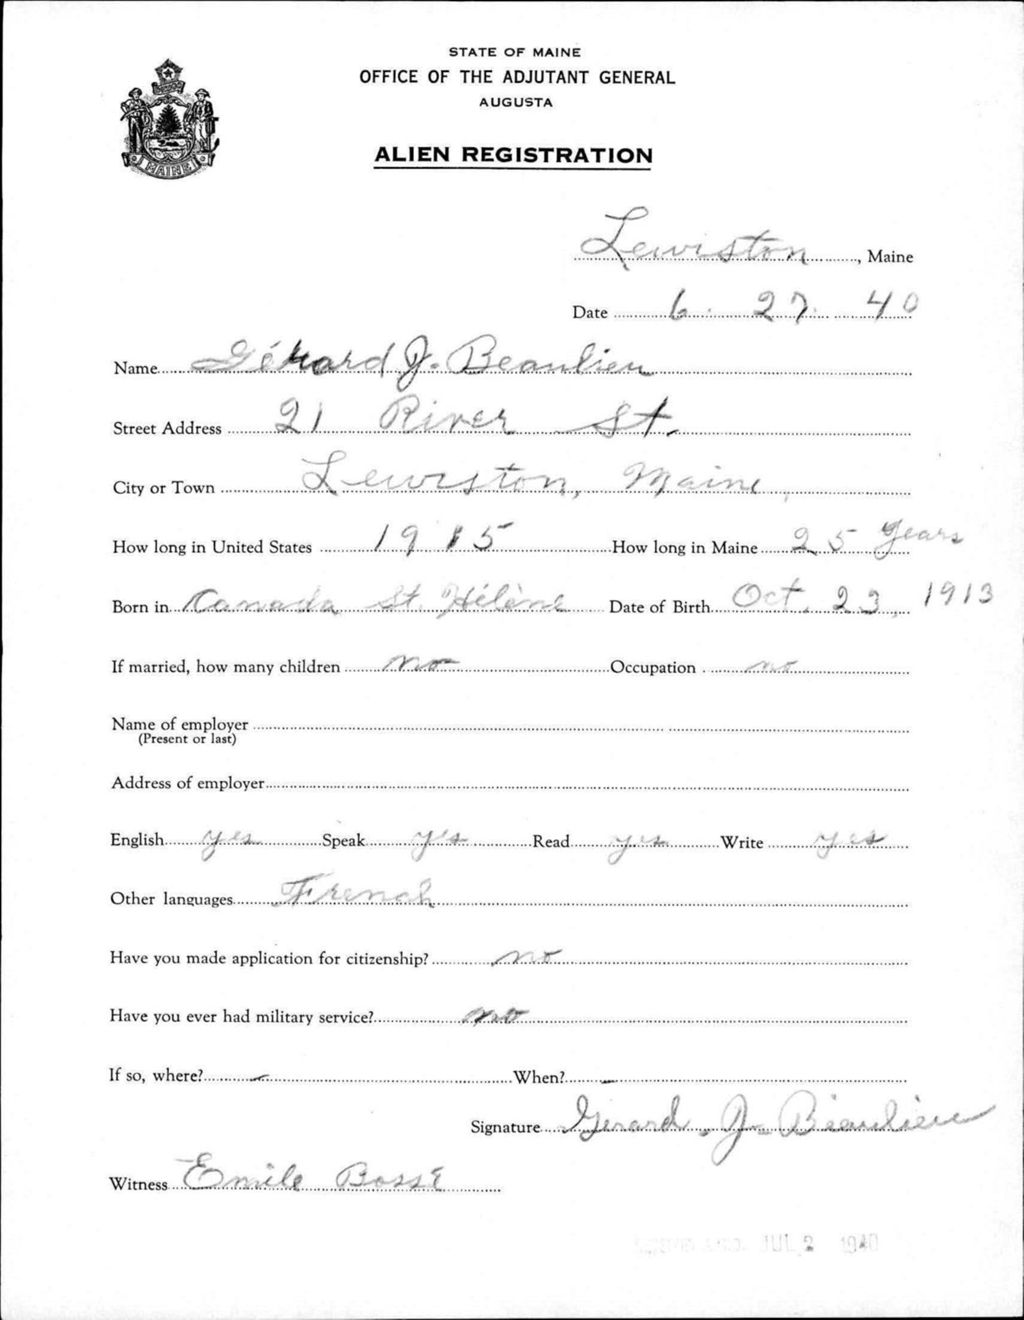 STATE OF MAINE
OFFICE OF THE ADJUTANT GENERAL
AUGUSTA
MAINE
ALIEN REGISTRATION
Lewiston, Maine
Date 6. 27. 40
Name Gérard J. Beaulieu
Street Address 21 River St.
City or Town Lewiston, Maine
How long in United States 1915 How long in Maine 25 years
Born in Canada St. Hélène Date of Birth Oct. 23, 1913
If married, how many children no Occupation no
Name of employer
(Present or last)
Address of employer
English yes Speak yes Read yes Write yes
Other languages French
Have you made application for citizenship? no
Have you ever had military service? no
If so, where? - When? -
Signature Gerard J. Beaulieu
Witness Emile Bossé
JUL 2 1940